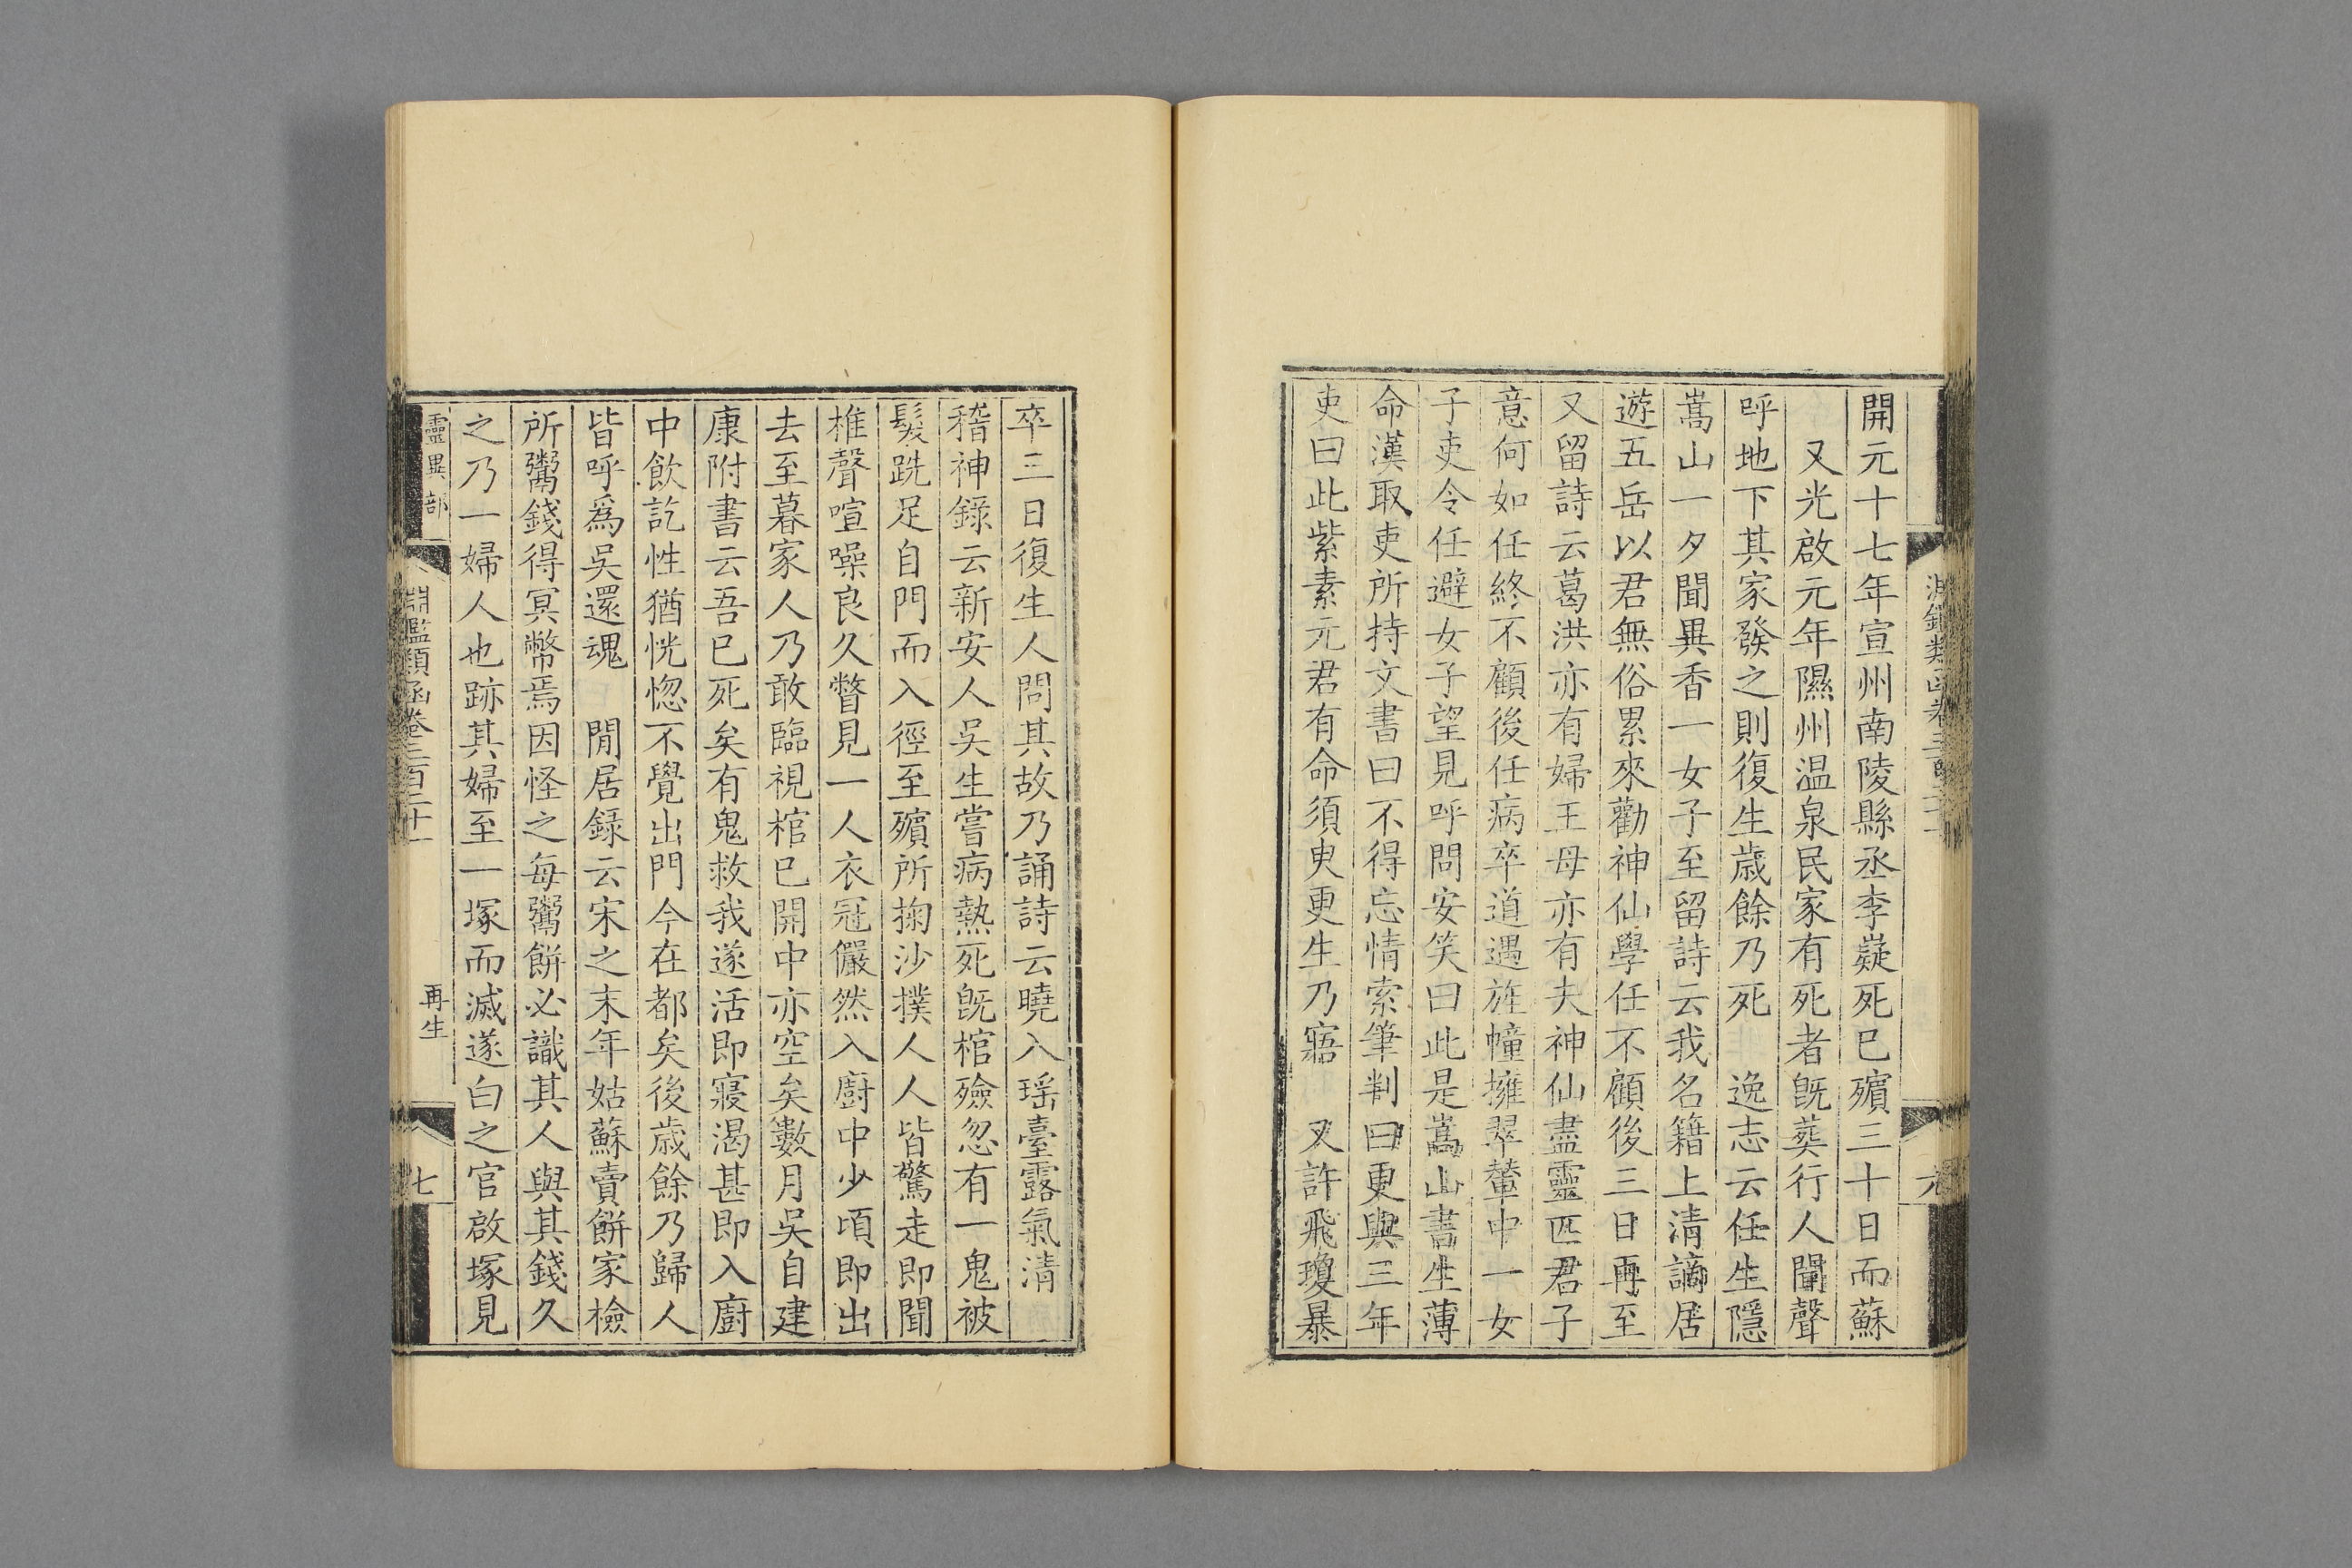 開元十七年宣州南陵縣丞李嶷死巳殯三十日而蘇
又光啟元年隰州温泉民家有死者旣葬行人聞聲
呼地下其家發之則復生歳餘乃死 逸志云任生隱
嵩山一夕聞異香一女子至留詩云我名籍上清謫居
遊五岳以君無俗累來勸神仙學任不顧後三日再至
又留詩云葛洪亦有婦王母亦有夫神仙盡靈匹君子
意何如任終不顧後任病卒道遇旌幢擁翠輦中一女
子吏令任避女子望見呼問安笑曰此是嵩山書生薄
命漢取吏所持文書曰不得忘情索筆判曰更與三年
吏曰此紫素元君有命須臾更生乃寤 又許飛瓊暴
卒三日復生人問其故乃誦詩云曉入瑶臺露氣清
稽神錄云新安人吳生嘗病熱死旣棺殮忽有一鬼被
髮跣足自門而入徑至殯所掬沙撲人人皆驚走即聞
椎聲喧噪良久瞥見一人衣冠儼然入廚中少頃即出
去至暮家人乃敢臨視棺巳開中亦空矣數月吳自建
康附書云吾巳死矣有鬼救我遂活即寢渴甚即入廚
中飲訖性猶恍惚不覺出門今在都矣後歳餘乃歸人
皆呼爲吳還魂 閒居録云宋之末年姑蘇賣餅家檢
所鬻錢得冥幣焉因怪之每鬻餅必識其人與其錢久
之乃一婦人也跡其婦至一塚而滅遂白之官啟塚見
靈異部 淵鑑類函卷三百二十一 再生 七